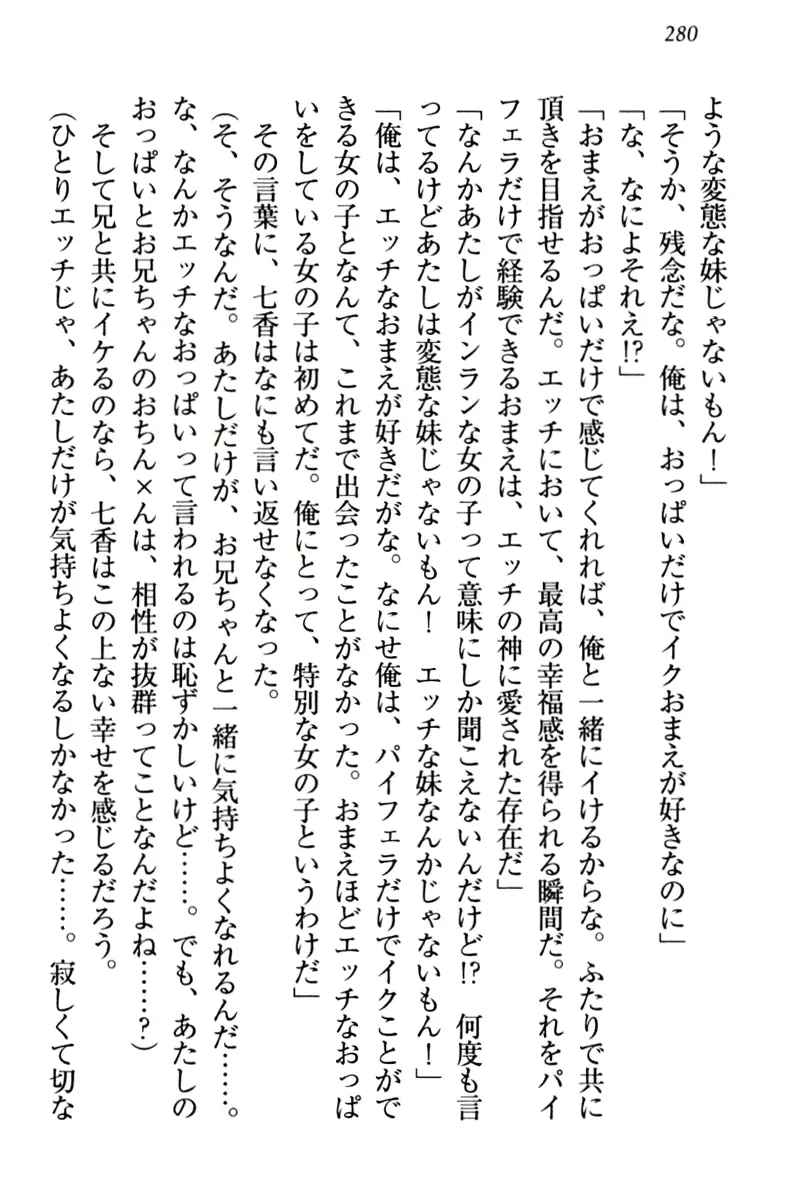 280
ような変態な妹じゃないもん！」
「そうか、残念だな。俺は、おっぱいだけでイクおまえが好きなのに」
「な、なによそれぇ!?」
「おまえがおっぱいだけで感じてくれれば、俺と一緒にイけるからな。ふたりで共に
頂きを目指せるんだ。エッチにおいて、最高の幸福感を得られる瞬間だ。それをパイ
フェラだけで経験できるおまえは、エッチの神に愛された存在だ」
「なんかあたしがインランな女の子って意味にしか聞こえないんだけど!?　何度も言
ってるけどあたしは変態な妹じゃないもん！　エッチな妹なんかじゃないもん！」
「俺は、エッチなおまえが好きだがな。なにせ俺は、パイフェラだけでイクことがで
きる女の子となんて、これまで出会ったことがなかった。おまえほどエッチなおっぱ
いをしている女の子は初めてだ。俺にとって、特別な女の子というわけだ」
その言葉に、七香はなにも言い返せなくなった。
（そ、そうなんだ。あたしだけが、お兄ちゃんと一緒に気持ちよくなれるんだ……。
な、なんかエッチなおっぱいって言われるのは恥ずかしいけど……。でも、あたしの
おっぱいとお兄ちゃんのおちん×んは、相性が抜群ってことなんだよね……？）
そして兄と共にイケるのなら、七香はこの上ない幸せを感じるだろう。
（ひとりエッチじゃ、あたしだけが気持ちよくなるしかなかった……。寂しくて切な